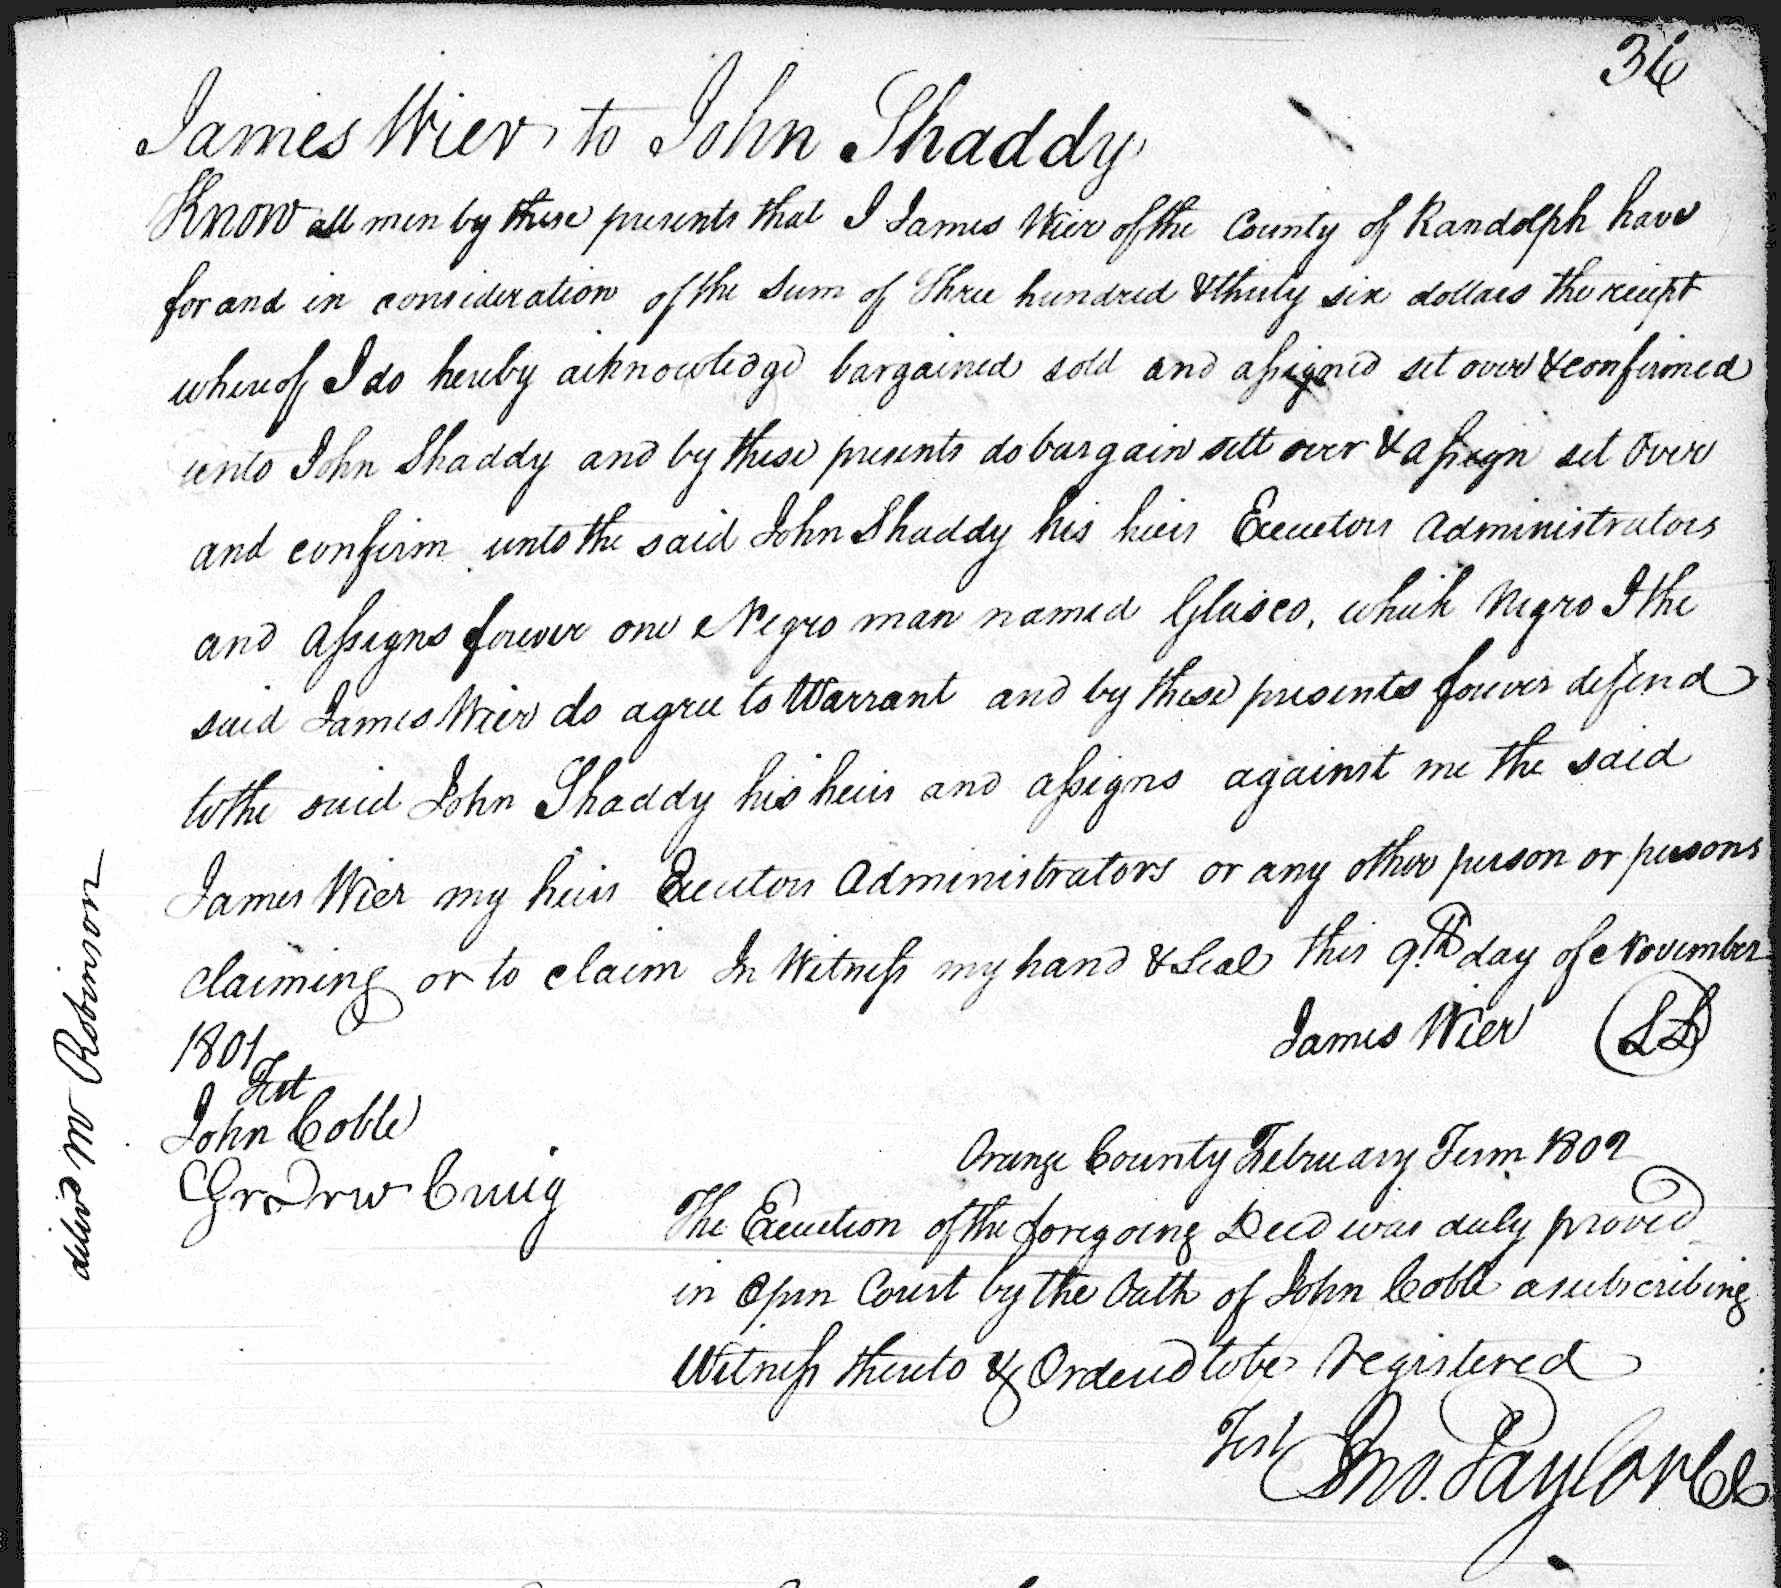 36
James Wier to John Shaddy
Know all men by these presents that I James Wier of the County of Randolph have
for and in consideration of the sum of Three hundred & thirty six dollars the reciept
whereof I do hereby acknowledge bargained sold and assigned set over & confirmed
unto John Shaddy and by these presents do bargain sell over & assign set over
and confirm unto the said John Shaddy his heirs Executors Administrators
and Assigns forever one Negro man named Glasco, which Negro I the
said James Wier do agree to Warrant and by these presents forever defend
to the said John Shaddy his heirs and assigns against me the said
James Wier my heirs Executors Administrators or any other person or persons
claiming or to claim In Witness my hand & Seal this 9th day of November
1801
James Wier LS
Test
John Coble
Craig
Orange County February Term 1802
The Execution of the foregoing Deed was duly proved
in Open Court by the Oath of John Coble a subscribing
Witness thereto & Ordered to be registered
Test Jno. Taylor CC
delivd Mr Robinson